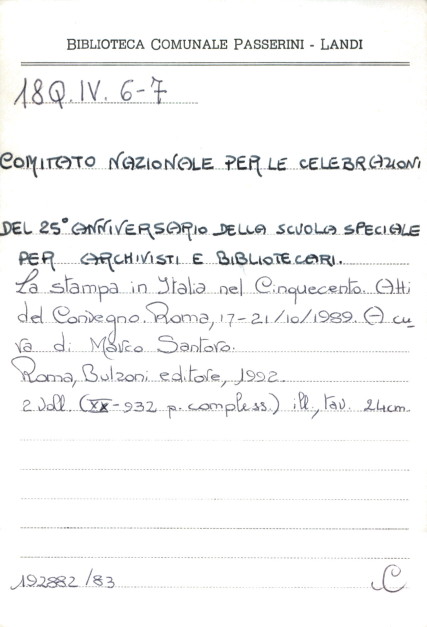 BIBLIOTECA COMUNALE PASSERINI - LANDI
18Q.IV. 6-7
COMITATO NAZIONALE PER LE CELEBRAZIONI
DEL 25° ANNIVERSARIO DELLA SCUOLA SPECIALE
PER ARCHIVISTI E BIBLIOTECARI.
La stampa in Italia nel Cinquecento. Atti
del Convegno. Roma, 17-21/10/1989. A cu_
ra di Marco Santoro.
Roma, Bulzoni editore, 1992.
2 voll. (XX-932 p. compless.) ill., tav. 24cm.
192882/83 C